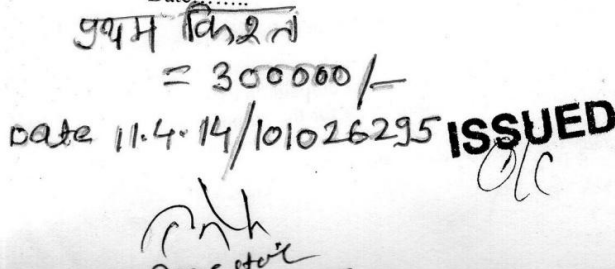 Date........
प्रथम किश्त
= 300000/-
Date 11.4.14/101026295 ISSUED
O/C